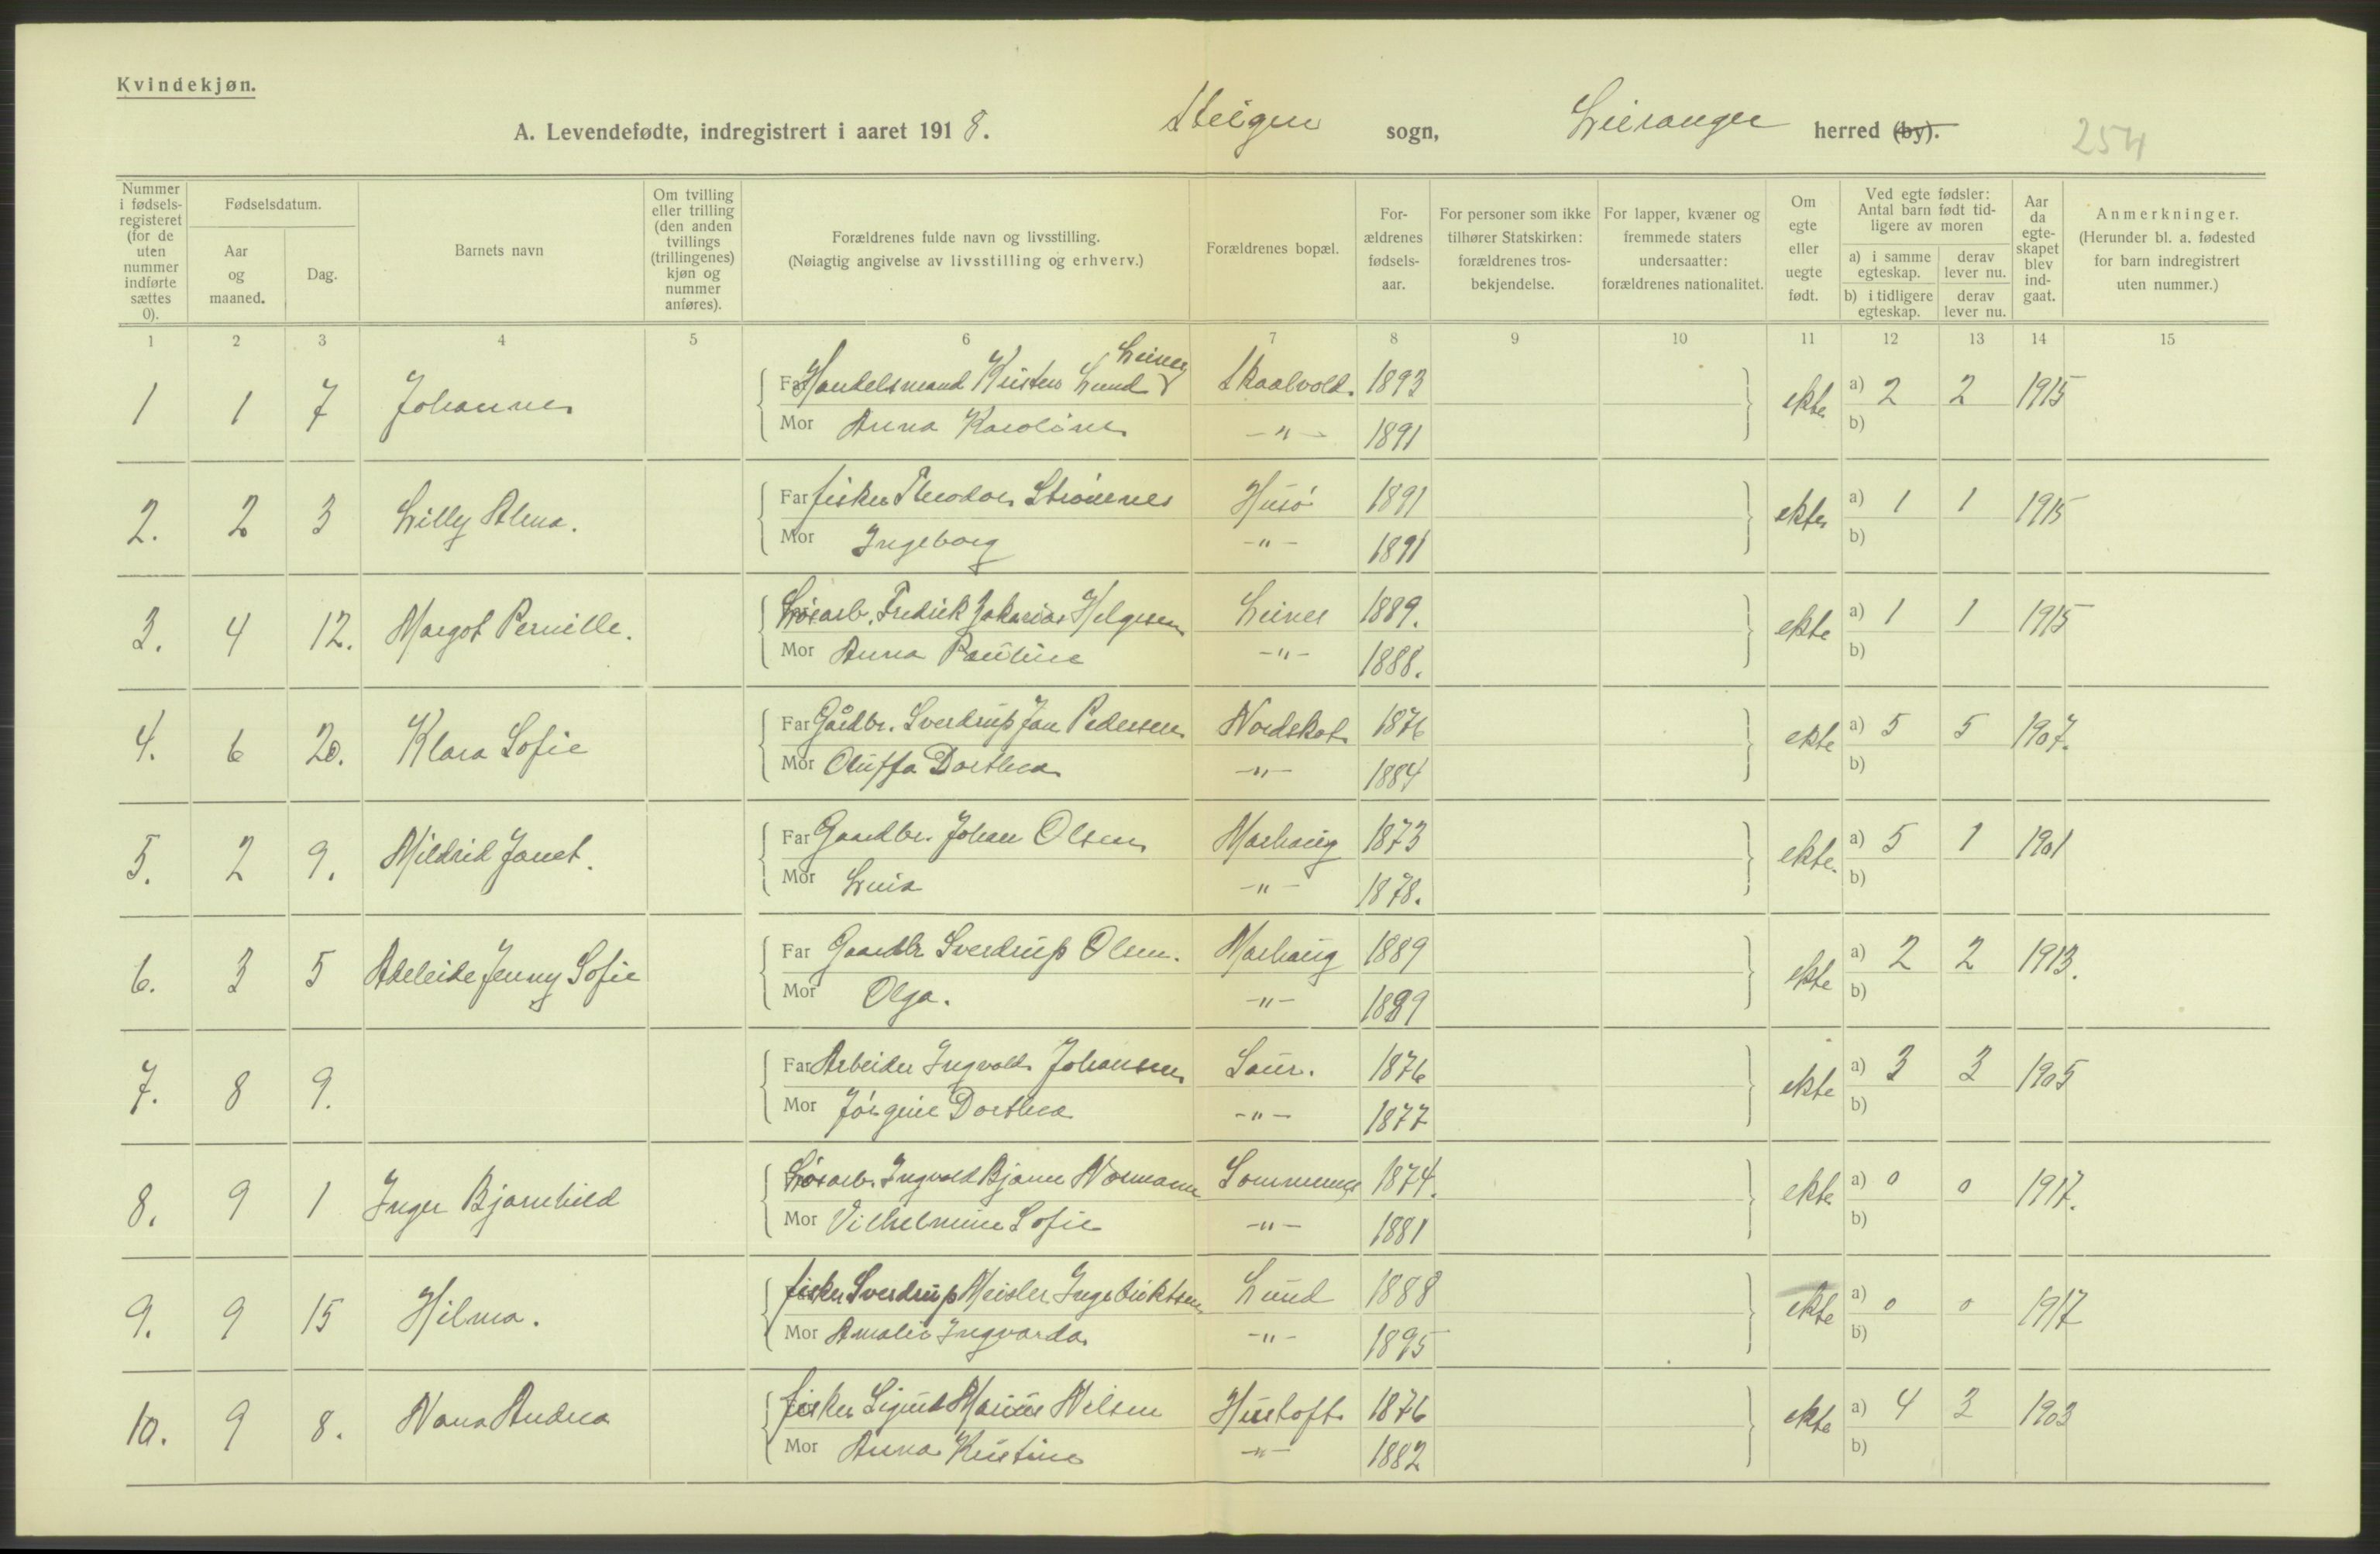 Kvindekjøn.
A. Levendefødte, indregistrert i aaret 1918. Steigen sogn, Leiranger herred (by). 254
Nummer i fødselsregisteret (for de uten nummer indførte sættes 0).
Fødselsdatum.
Aar og maaned.
Dag.
Barnets navn
Om tvilling eller trilling (den anden tvillings (trillingenes) kjøn og nummer anføres).
Forældrenes fulde navn og livsstilling.
(Nøiagtig angivelse av livsstilling og erhverv.)
Forældrenes bopæl.
Forældrenes fødselsaar.
For personer som ikke tilhører Statskirken: forældrenes trosbekjendelse.
For lapper, kvæner og fremmede staters undersaatter: forældrenes nationalitet.
Om egte eller uegte født.
Ved egte fødsler: Antal barn født tidligere av moren
a) i samme egteskap.
derav lever nu.
b) i tidligere egteskap.
derav lever nu.
Aar da egteskapet blev indgaat.
Anmerkninger.
(Herunder bl. a. fødested for barn indregistrert uten nummer.)
1 2 3 4 5 6 7 8 9 10 11 12 13 14 15
Leines
1 1 7 Johanne Far Handelsmand Kristen Lund Skaalvold 1893 ekte a) 2 2 1915
Mor Anna Karoline -"- 1891 b)
2. 2 3 Lilly Alma. Far fisker Theodor Strømnes Husö 1891 ekte a) 1 1 1915
Mor Ingeborg -"- 1891 b)
3. 4 12. Margot Pernille. Lösarb. Fredrik Zakarias Helgesen Leines 1889. ekte a) 1 1 1915
Mor Anna Pauline -"- 1888. b)
4. 6 20. Klara Sofie Far Gårdbr. Sverdrup Jan Pedersen Nordskot 1876 ekte a) 5 5 1907.
Mor Oluffa Dorthea -"- 1884 b)
5. 2 9. Mildrid Janet. Far Gaardbr. Johan Olsen Marhaug 1873 ekte. a) 5 1 1901
Mor Lina -"- 1878. b)
6. 3 5 Adeleide Jenny Sofie Far Gaardbr Sverdrup Olsen. Marhaug 1889 ekte a) 2 2 1913.
Mor Olga. -"- 1889 b)
7. 8 9. Far Arbeider Ingvald Johansen Saur. 1876 ekte a) 3 3 1905
Mor Jörgine Dorthea -"- 1877 b)
8. 9 1 Inger Bjarnhild Lösarb. Ingvald Bjarne Normann Sommernes 1874. ekte a) 0 0 1917.
Mor Vilhelmine Sofie -"- 1881 b)
9. 9 15 Hilma. fisker Sverdrup Meisler Ingebriktsen Lund 1888 ekte a) 0 0 1917
Mor Amalie Ingvarda -"- 1895 b)
10. 9 8. Nana Andrea fisker Sigurd Marius Nilsen Hustoft 1876 ekte a) 4 3 1903
Mor Anna Kristine -"- 1882 b)